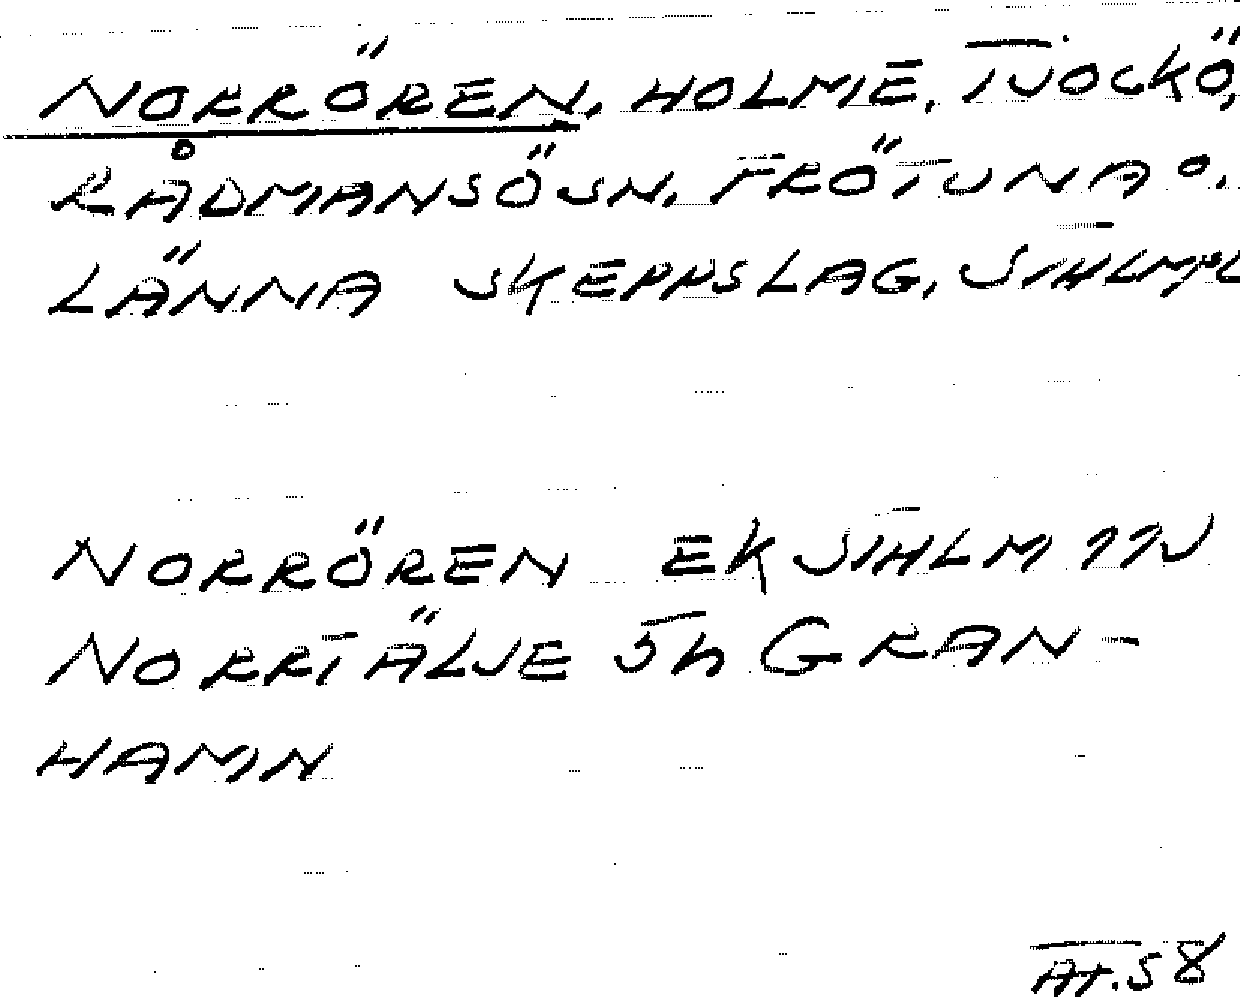 NORRÖREN, HOLME, TJOCKÖ,
RÅDMANSÖ SN, FRÖTUNA O.
LÄNNA SKEPPSLAG, STHLMS L
NORRÖREN EK STHLM
NORRTÄLJE 5h GRAN-
HAMN
AT.58